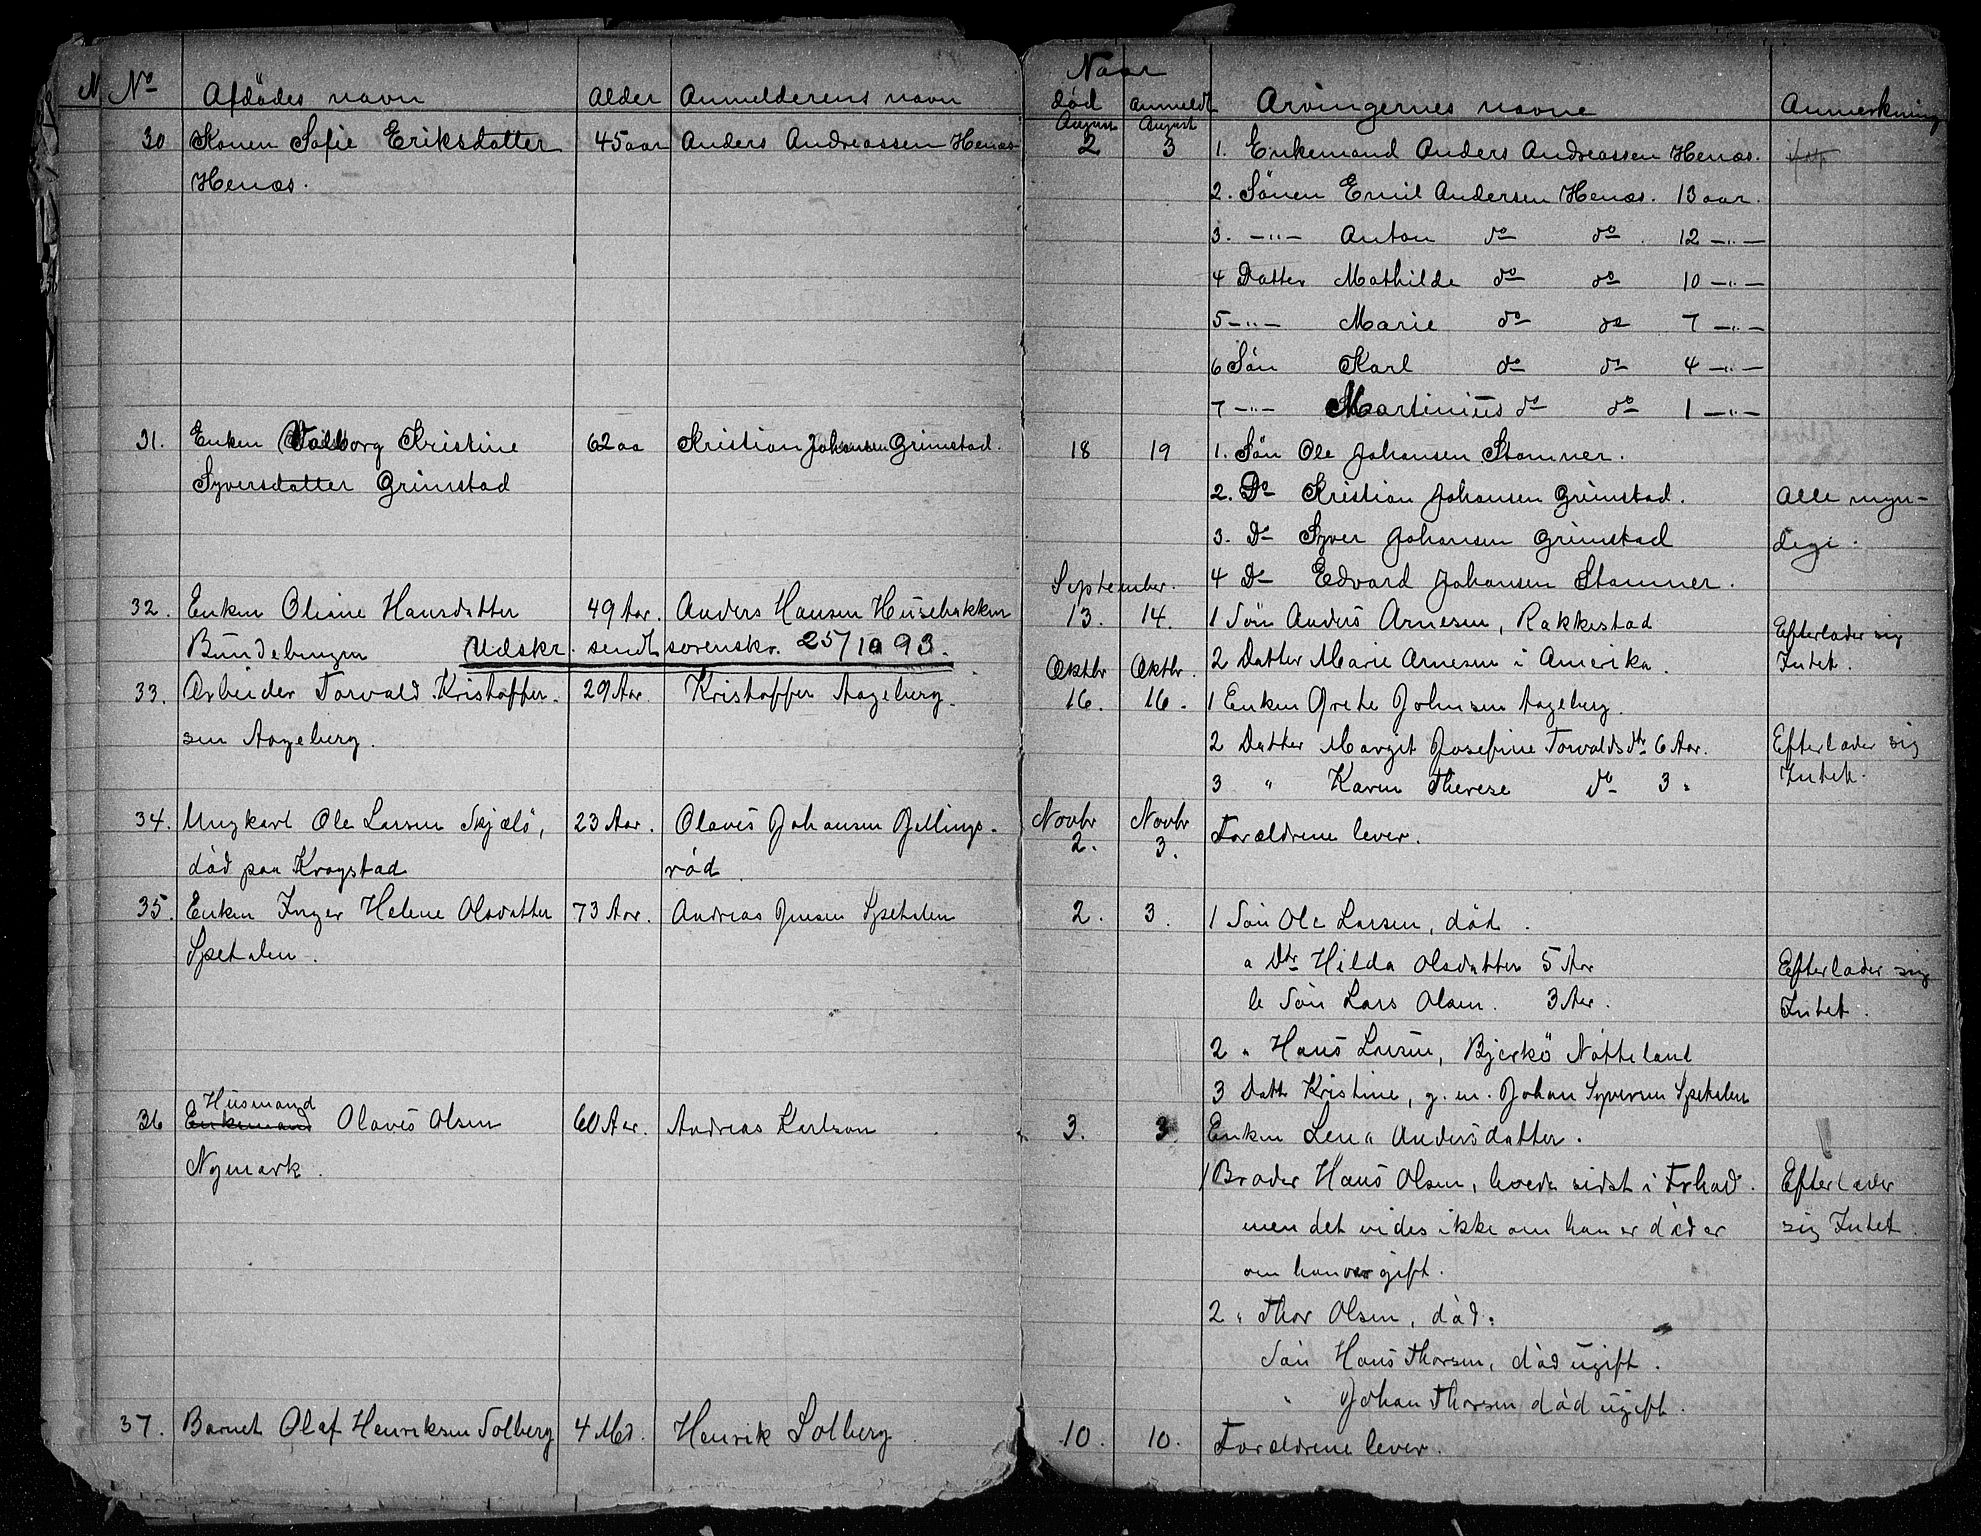 No Afdödes navn Alder Anmelderens navn
30 Konen Sofie Eriksdatter 45 aar Anders Andreassen Henæs
Henæs.
31. Enken Valborg Kristine 62 aa Kristian Johansen Grimstad.
Syversdatter Grimstad
32. Enken Oliane Hansdatter 49 Aar. Anders Hansen Husebakken
Bundebingen Udskr. sendt sorenskr. 25/10 93.
33. Arbeider Torvald Kristoffer- 29 Aar. Kristoffer Aageberg.
sen Aageberg.
34. Ungkarl Ole Larsen Skjælö, 23 Aar. Olavés Johansen Gellings-
död paa Krogstad röd
35. Enken Inger Helene Olsdatter 73 Aar. Andreas Jensen Spetalen
Spetalen.
Husmand
36 Enkemand Olavés Olsen 60 Aar. Andreas Karlson
Nymark.
37. Barnet Olaf Henriksen Solberg 4 Md. Henrik Solberg
Naar
död anmeldt Arvingernes navne Anmerkning
August August
2 3 1. Enkemand Anders Andreassen Henæs.
2. Sönen Emil Andersen Henæs. 13 aar.
3. —"— Anton do do. 12 —"—
4 Datter Mathilde do do 10 —"—
5 —"— Marie do do 7 —"—
6 Sön Karl do do 4 —"—
7 —"— Martinius do do 1 —"—
18 19 1. Sön Ole Johansen Stamner.
2. Do Kristian Johansen Grimstad. Alle myn-
3. Do Syver Johansen Grimstad dige.
September. 4 Do Edvard Johansen Stamner.
13. 14. 1 Sön Anders Arnesen, Rakkestad Efterlader sig
2 Datter Marie Arnesen i Amerika. Intet.
Oktbr Oktbr.
16. 16. 1 Enken Grete Johnsen Aageberg.
2 Datter Margit Josefine Torvaldsdtr 6 Aar. Efterlader sig
3 " Karen Therese do 3 " Intet.
Novbr Novbr
2. 3. Forældrene lever.
2. 3. 1 Sön Ole Larsen, död.
a Dtr Hilda Olsdatter 5 Aar Efterlader sig
b Sön Lars Olsen. 3 Aar. Intet.
2 " Hans Larsen, Bjerkö Nötteland
3 Datt Kristine, g. m. Johan Syversen Spetalen
3. 3. Enken Lena Andersdatter.
1 Broder Hans Olsen, boede sidst i Frhad. Efterlader
men det vides ikke om han er död er sig Intet.
om han var gift.
2 " Thor Olsen, död.
Sön Hans Thorsen, död ugift.
" Johan Thorsen död ugift.
10. 10. Forældrene lever.